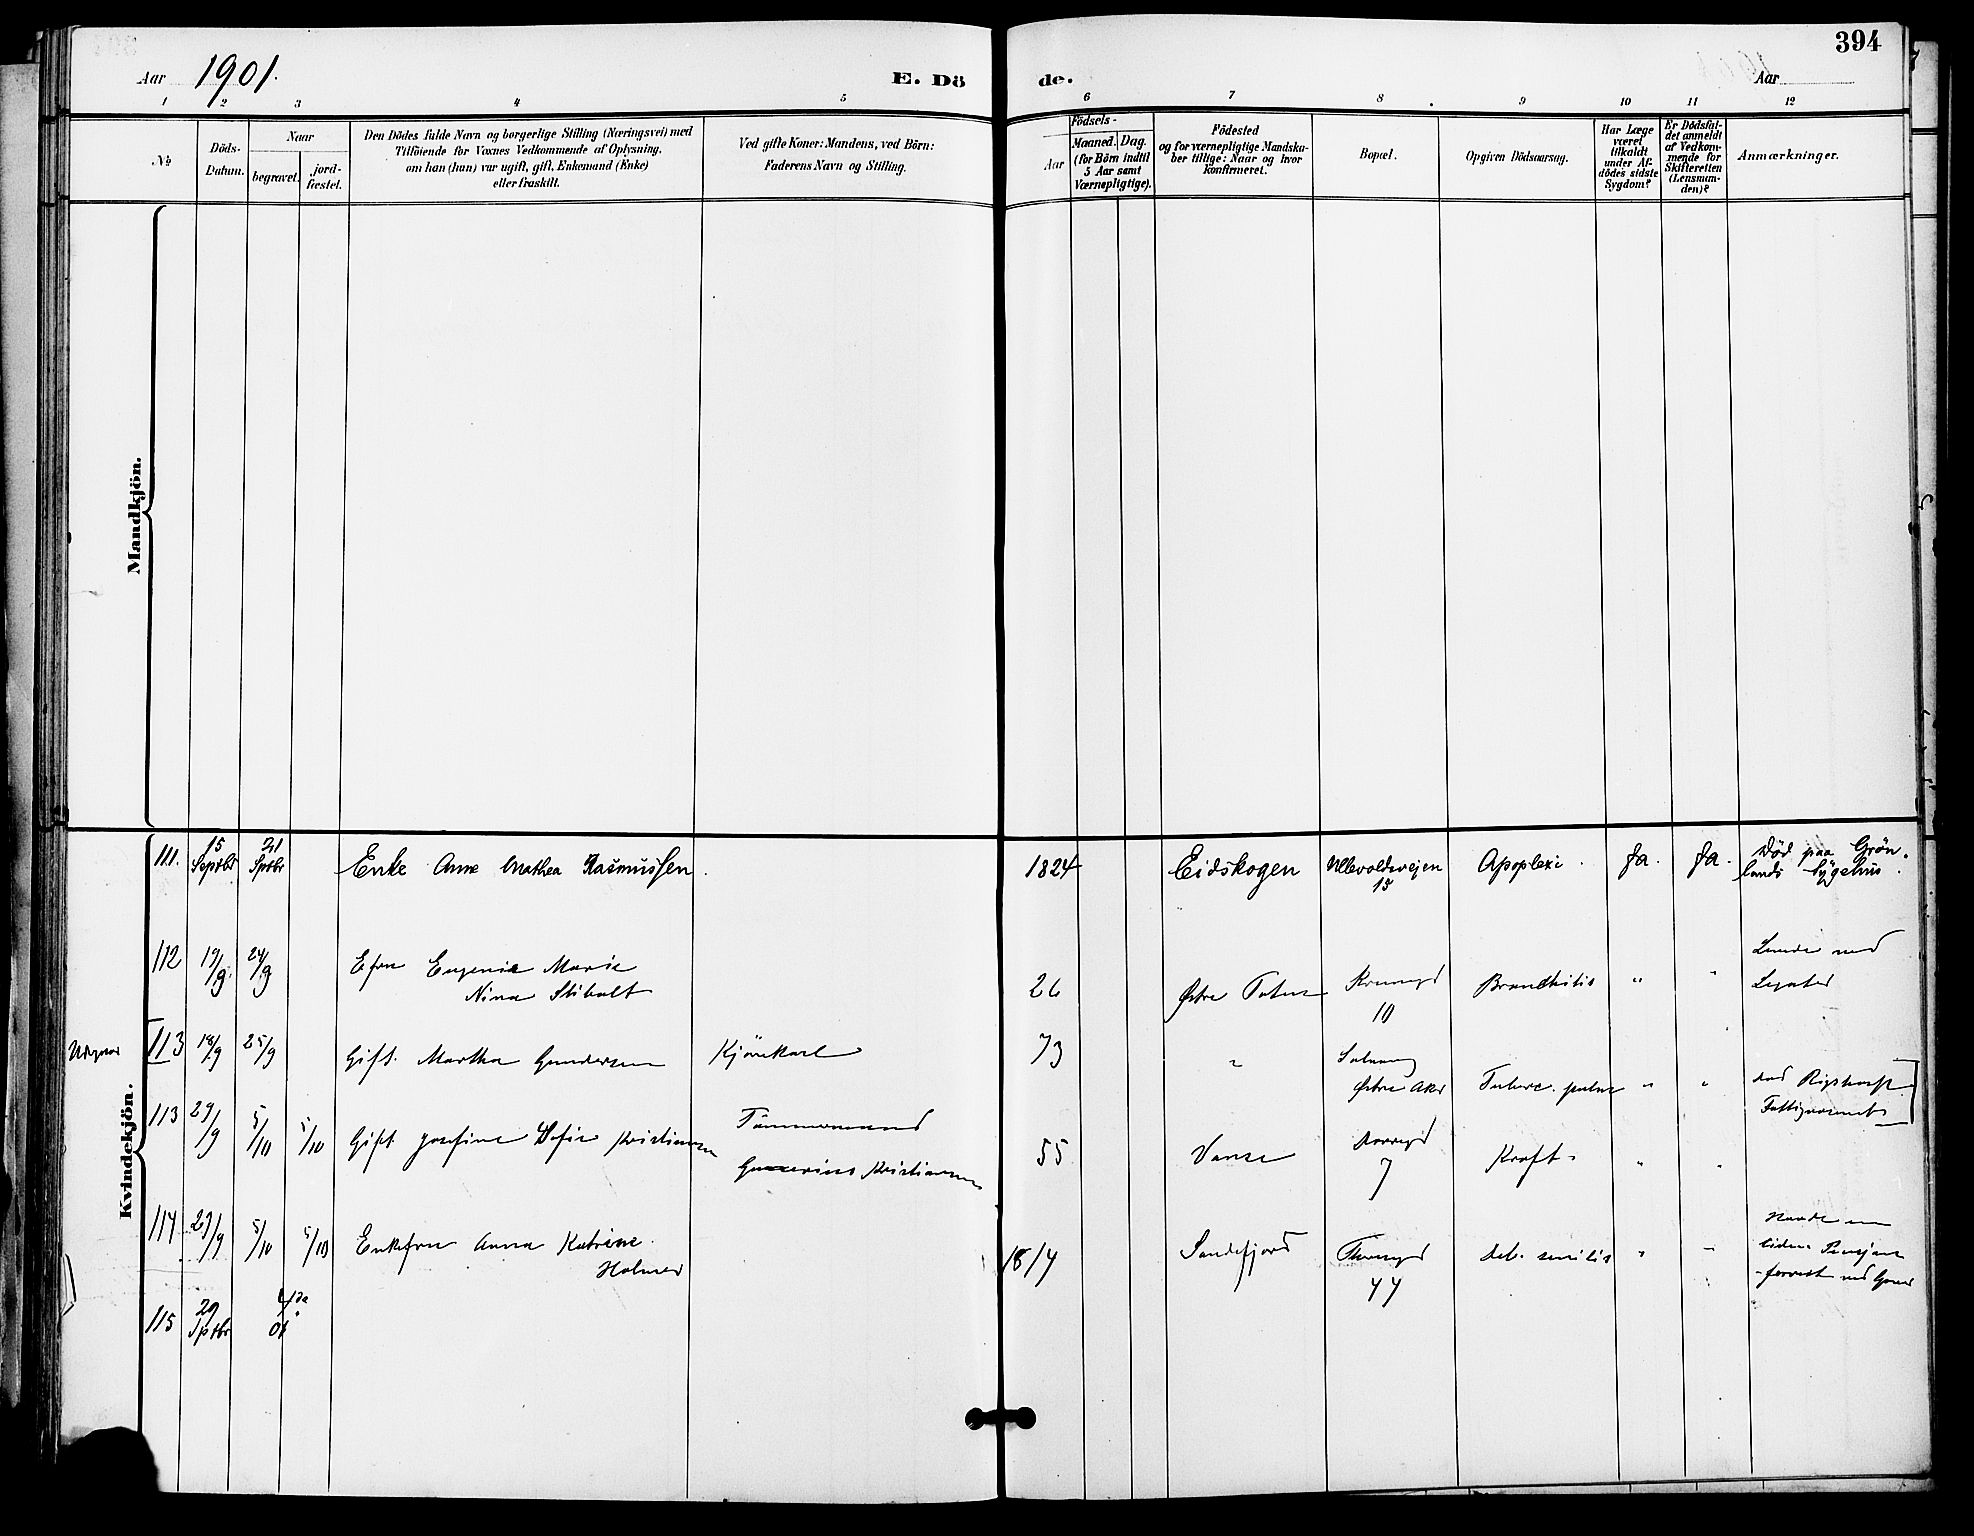 Aar 1901.
E. Dö
de.
Aar
394
1 2 3 4 5 6 7 8 9 10 11 12
No
Döds-
Datum.
Naar
begravet.
jord-
fæstet.
Den Dödes fulde Navn og borgerlige Stilling (Næringsvei) med
Tilföiende for Voxnes Vedkommende af Oplysning,
om han (hun) var ugift, gift, Enkemand (Enke)
eller fraskilt.
Ved gifte Koner: Mandens, ved Börn:
Faderens Navn og Stilling.
Aar
Födsels-
Maaned. Dag.
(for Börn indtil
5 Aar samt
Værnepligtige).
Födested
og for værnepligtige Mandska-
ber tillige: Naar og hvor
konfirmeret.
Bopæl.
Opgiven Dödsaarsag.
Har Læge
været
tilkaldt
under Af-
dödes sidste
Sygdom?
Er Dödsfal-
det anmeldt
af Vedkom-
mende for
Skifteretten
(Lensman-
den)?
Anmærkninger.
Mandkjön.
Kvindekjön.
111. 15 Septbr 21 Sptbr Enke Anne Mathea Rasmussen. 1824 Eidskogen Ullevoldsvejen 15 Apoplexi. Ja. Ja. Död paa Grön-
lands Sygehus.
112 19/9. 24/9 Efru Eugenie Marie
Nina Stibolt 26 Østre Toten 10 Bronchitis " " Legated
113 18/9 25/9 Gift. Martha Gundersen Kjörekarl 73 " Østre Aker Tuberc. pulm " " död Rigshosp.
Fattigvæsenet
113 29/9 5/10 5/10 Gift Josefine Sofie Kristiansen Tömmermand
Kristiansen 55 Vanse 7 Kræft. " "
114 27/9 5/10 5/10 Enkefru Anna Katrine
Holmer 1814 Sandefjord 44 deb. senilis " "
115 29 Sptbr 4/10 01